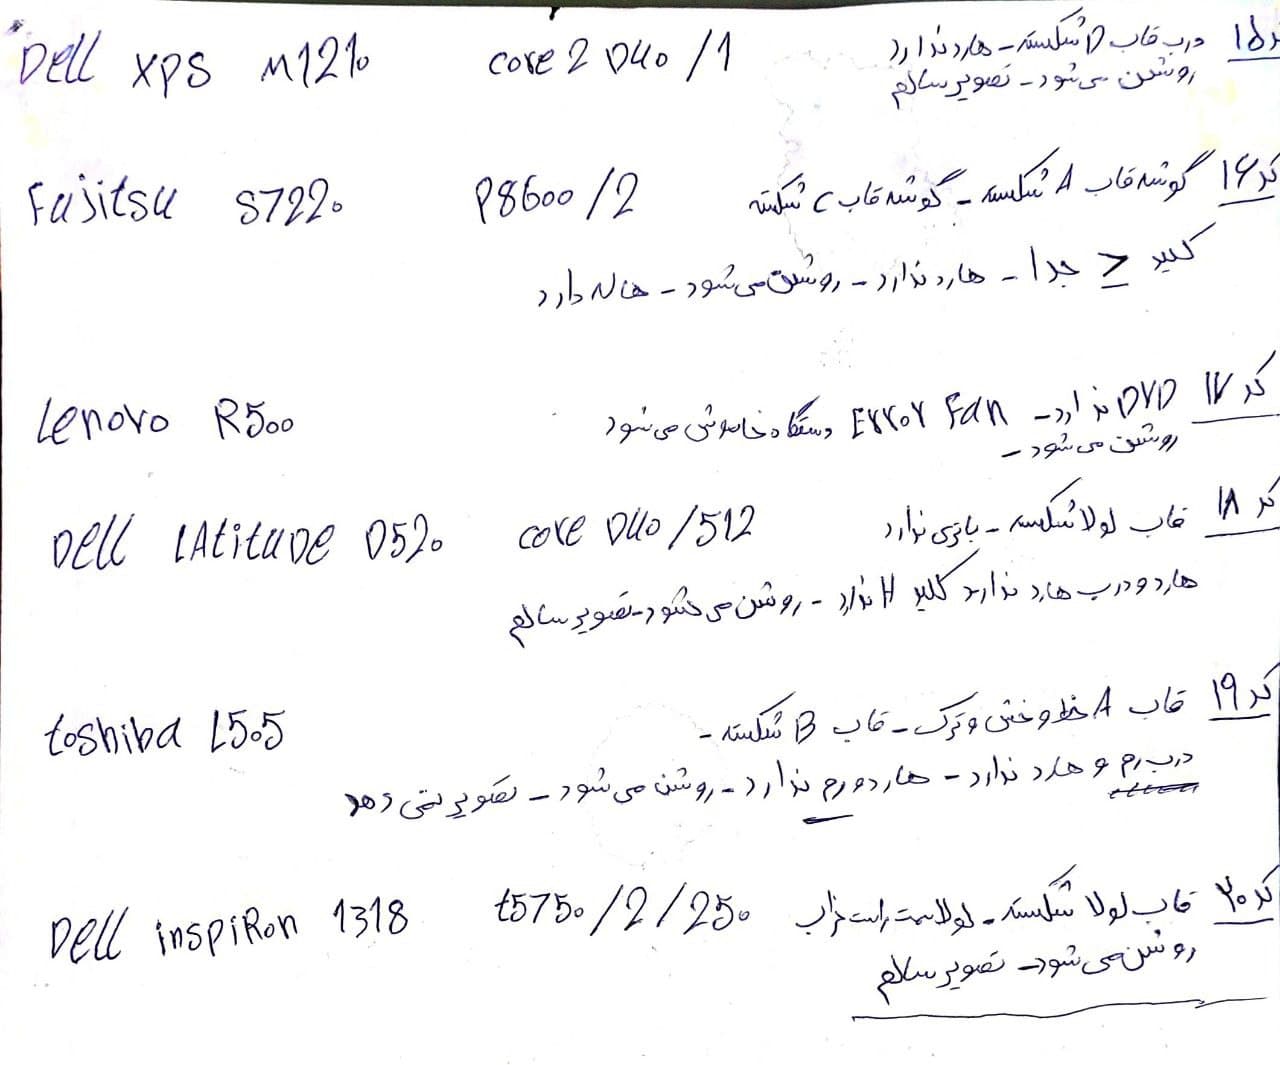 Dell XPS M1210 core 2 Duo /1 کد ۱۵ درب قاب D شکسته - هارد ندارد
روشن می‌شود - تصویر سالم
Fujitsu S7220 P8600 /2 کد ۱۶ گوشه قاب A شکسته - گوشه قاب C شکسته
کلید > جدا - هارد ندارد - روشن می‌شود - هاله دارد
Lenovo R500 کد ۱۷ DVD ندارد - Error Fan دستگاه خاموش می‌شود
روشن می‌شود -
Dell LAtituDE D520 core Duo /512 کد ۱۸ قاب لولا شکسته - باتری ندارد
هارد و درب هارد ندارد کلید H ندارد - روشن می‌شود - تصویر سالم
toshiba L505 کد ۱۹ قاب A خط و خش و ترک - قاب B شکسته -
درب رم و هارد ندارد - هارد و رم ندارد - روشن می‌شود - تصویر نمی دهد
Dell inspiRon 1318 t5750 /2 /250 کد ۲۰ قاب لولا شکسته - لولا سمت راست خراب
روشن می‌شود - تصویر سالم